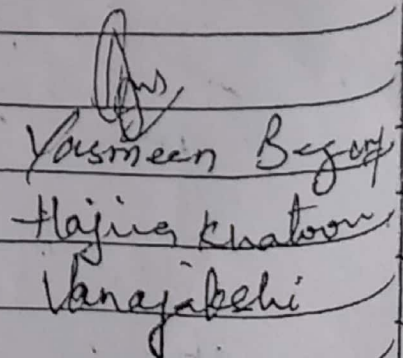 Yasmeen Begum
Hajira Khatoon
Vanajakshi